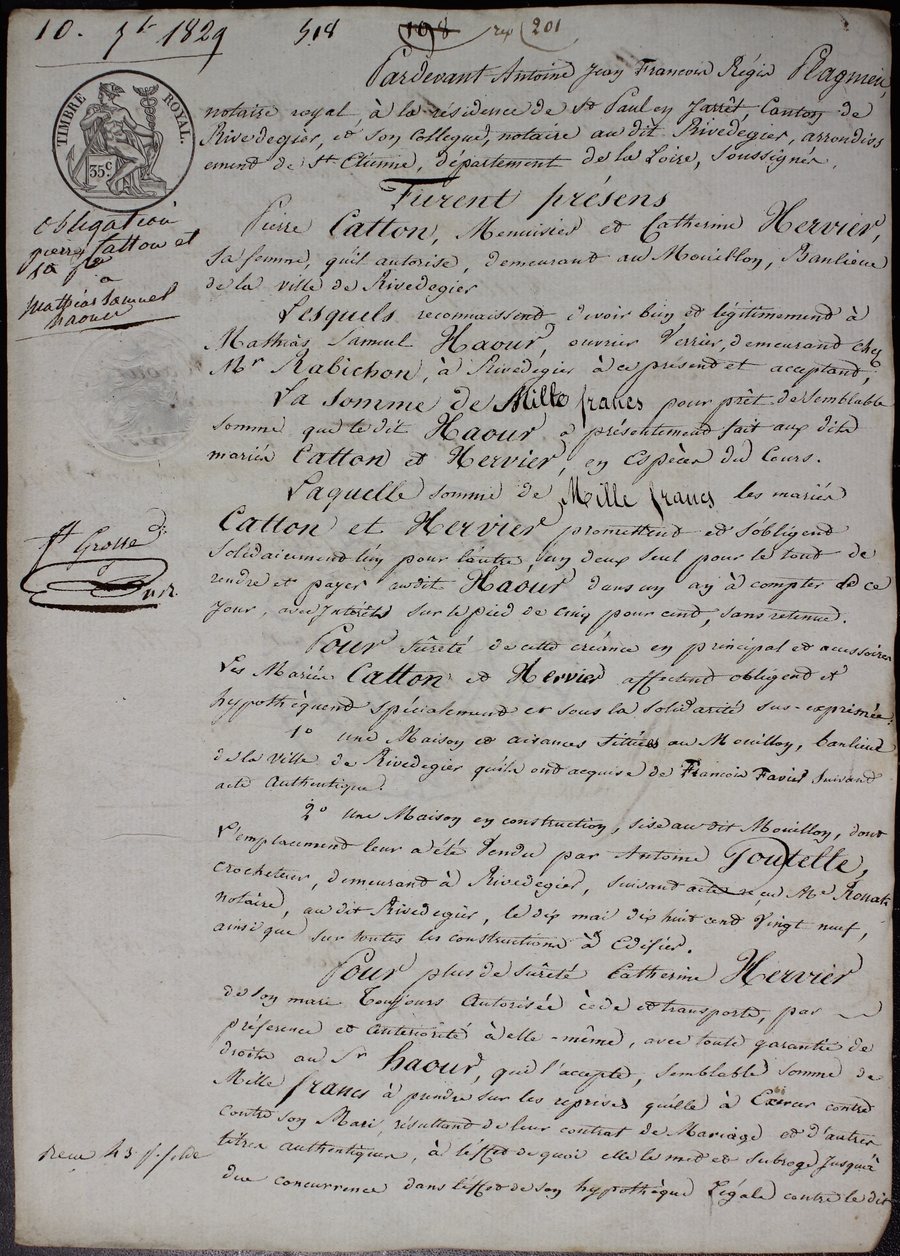 10. 7bre 1829 518 198 rep 201
Pardevant Antoine Jean François Régis Plagnieu,
notaire royal à la résidence de St Paul en Jarrêt, Canton de
Rivedegier, et son collegue, notaire au dit Rivedegier, arrondiss
ement de St Etienne, département de la Loire, soussignés,
TIMBRE ROYAL.
35 c
Furent présens
Pierre Catton, Menuisier et Catherine Hervier,
sa femme, qu'il autorise, demeurant au Mouillon, Banlieue
de la ville de Rivedegier
obligation
pierre Catton et
sa fe
a
mathias samuel
haour
Lesquels reconnaissent devoir bien et légitimement à
Mathias Samuel Haour, ouvrier Verrier, demeurant chez
Mr Rabichon, à Rivedegier à ce présent et acceptant,
La somme de Mille francs pour prêt de semblable
somme que le dit Haour a présentement fait aux dits
mariés Catton et Hervier, en Espèces du Cours.
Laquelle somme de Mille francs les mariés
Catton et Hervier promettent et s'obligent
solidairement l'un pour l'autre, un deux seul pour le tout de
rendre et payer audit Haour dans un an à compter de ce
jour, avec Intérêts sur le pied de cinq pour cent, sans retenue.
ft Grosse
Pour sûreté de cette créance en principal et accessoires
Les Mariés Catton et Hervier affectent obligent et
hypothèquent spécialement et sous la solidarité sus-exprimée.
1o une Maison et aisances situées au Mouillon, banlieue
de la ville de Rivedegier qu'ils ont acquise de François Favier suivant
acte Authentique.
2o une Maison en construction, sise au dit Mouillon, dont
l'emplacement leur a été Vendu par Antoine Goutelle,
crocheteur, demeurant à Rivedegier, suivant acte reçu Me Ronat
notaire, au dit Rivedegier, le dix mai dix huit cent Vingt neuf,
ainsi que sur toutes les constructions à Edifier.
Pour plus de sûreté Catherine Hervier
de son mari Toujours Autorisée cède et transporte, par
préférence et antériorité à elle-même, avec toute garantie de
droits au Sr haour, qui l'accepte, semblable somme de
Mille francs à prendre sur les reprises qu'elle à Exercer contre
contre son Mari résultant de leur contrat de Mariage et d'autres
titres authentiques, à l'effet de quoi elle le met et subroge jusqu'à
due concurrence dans l'effet de son hypothèque Légale contre le dit